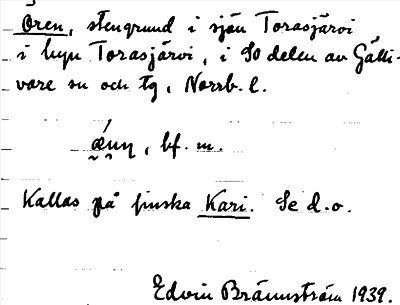 Ören, stengrund i sjön Torasjärvi
i byn Torasjärvi, i SO delen av Gälli-
vare sn och tg, Norrb. l.
bf. m.
Kallas på finska Kari. Se d.o.
Edvin Brännström 1939.